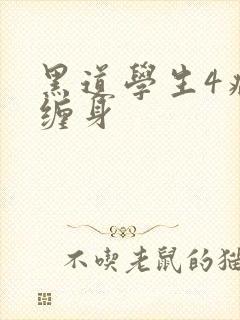 黑道學生4
缠身
不喫老鼠的猫